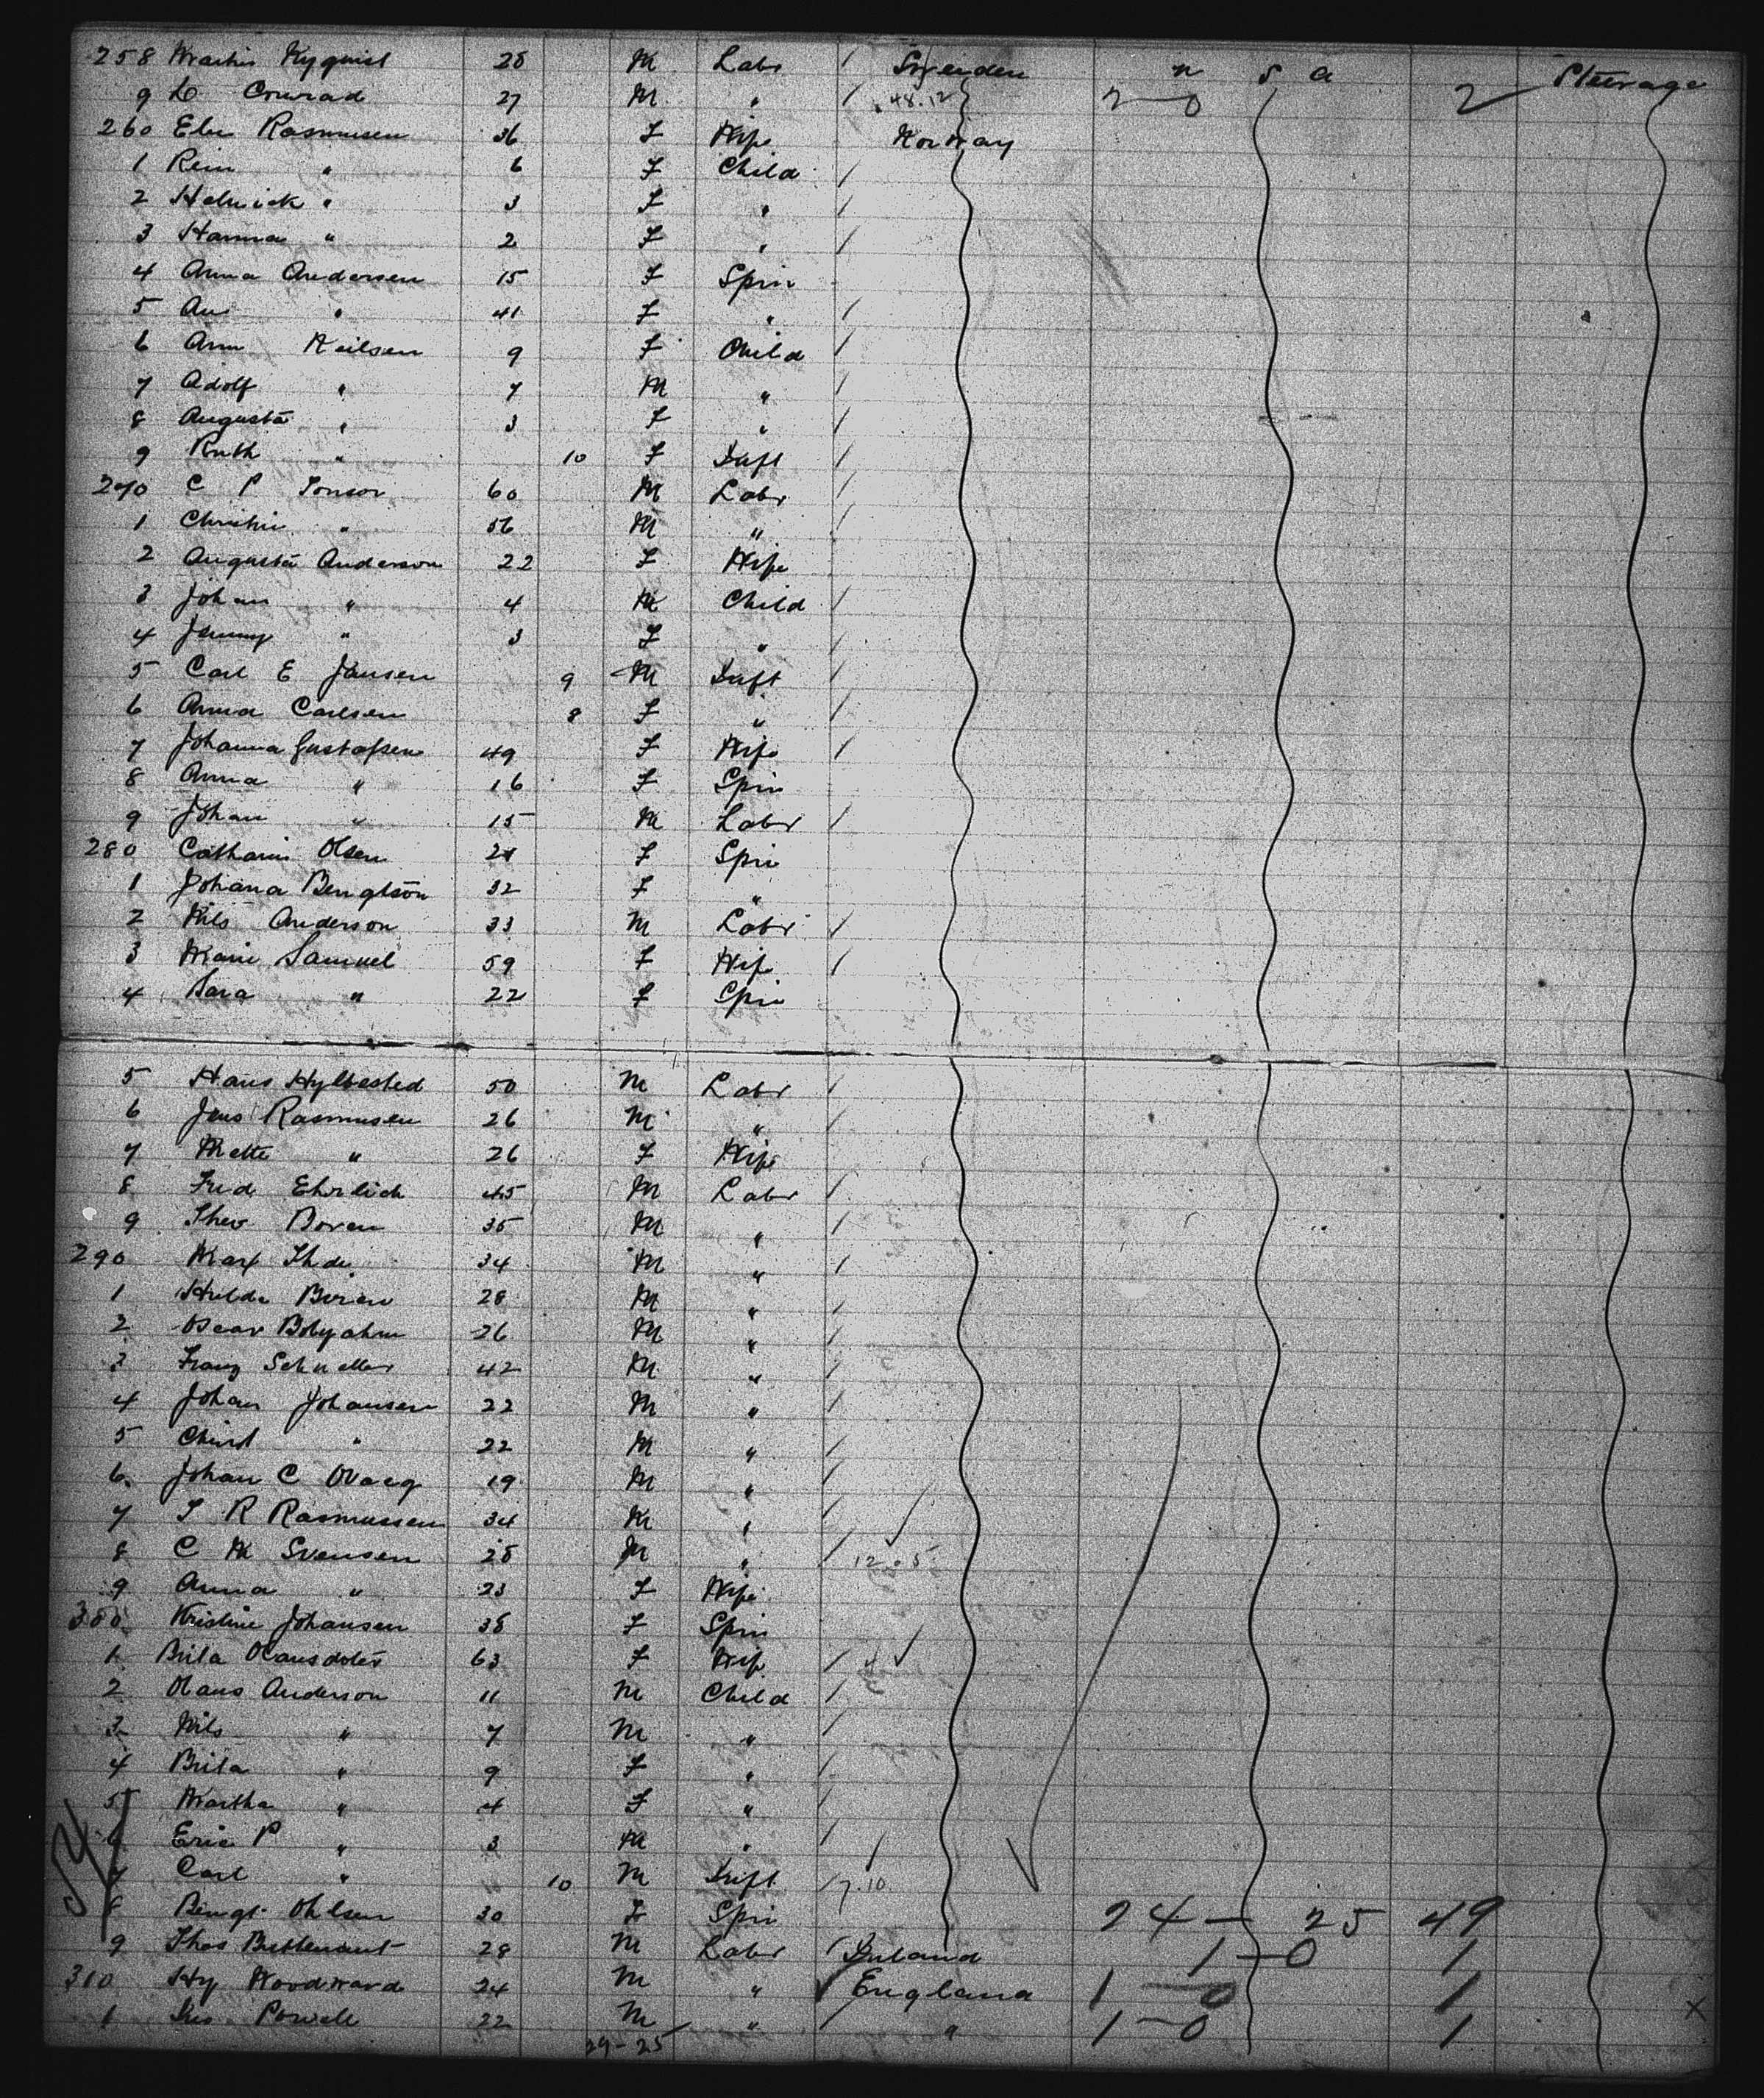 258 Martin Nyquist 28 M Labr / Sweeden U S A 2 Steerage
9 L Conrad 27 M " / 48.12 2-0
260 Elen Rasmusen 36 F Wife Norway
1 Rein " 6 F Child /
2 Helmick " 3 F " /
3 Hanna " 2 F " /
4 Anna Andersen 15 F Spin
5 Ani " 41 F " /
6 Ann Neilsen 9 F Child /
7 Adolf " 7 M " /
8 Augusta " 3 F " /
9 Ruth " 10 F Inft /
270 C P Jonson 60 M Labr /
1 Christin " 56 M " /
2 Augusta Anderson 22 F Wife
3 Johan " 4 M Child /
4 Jenny " 3 F " /
5 Carl E Jansen 9 M Inft /
6 Anna Carlsen 8 F " /
7 Johanna Gustafsen 49 F Wife /
8 Anna " 16 F Spin
9 Johan " 15 M Labr /
280 Catharin Olsen 21 F Spin
1 Johana Bengtson 32 F "
2 Nils Anderson 33 M Labr /
3 Marie Samuel 59 F Wife /
4 Sara " 22 F Spin
5 Hans Hylbested 50 M Labr /
6 Jens Rasmusen 26 M " /
7 Mette " 26 F Wife
8 Fred Ehrlich 45 M Labr /
9 Theo Boren 35 M " /
290 Max Thde 34 M " /
1 Hulda Boren 28 M " /
2 Oscar 26 M " /
3 Franz Schueller 42 M " /
4 Johan Johansen 22 M " /
5 Christ " 22 M " /
6 Johan C 19 M " /
7 T R Rasmussen 34 M " /
8 C M Svensen 28 M " / 12.5
9 Anna " 23 F Wife
300 Kristine Johansen 38 F Spin
1 Brita Olausdoter 63 F Wife /
2 Olaus Anderson 11 M Child /
3 Nils " 7 M " /
4 Brita " 9 F " /
5 Martha " 4 F " /
6 Eric P " 3 M " /
7 Carl " 10 M Inft / 7.10
8 Bengt Ohlsen 30 F Spin 24 - 25 49
9 Thos 28 M Labr / Ireland 1-0 1
310 Hy Woodward 24 M " / England 1-0 1
1 Powell 22 M " / " 1-0 1 X
29-25